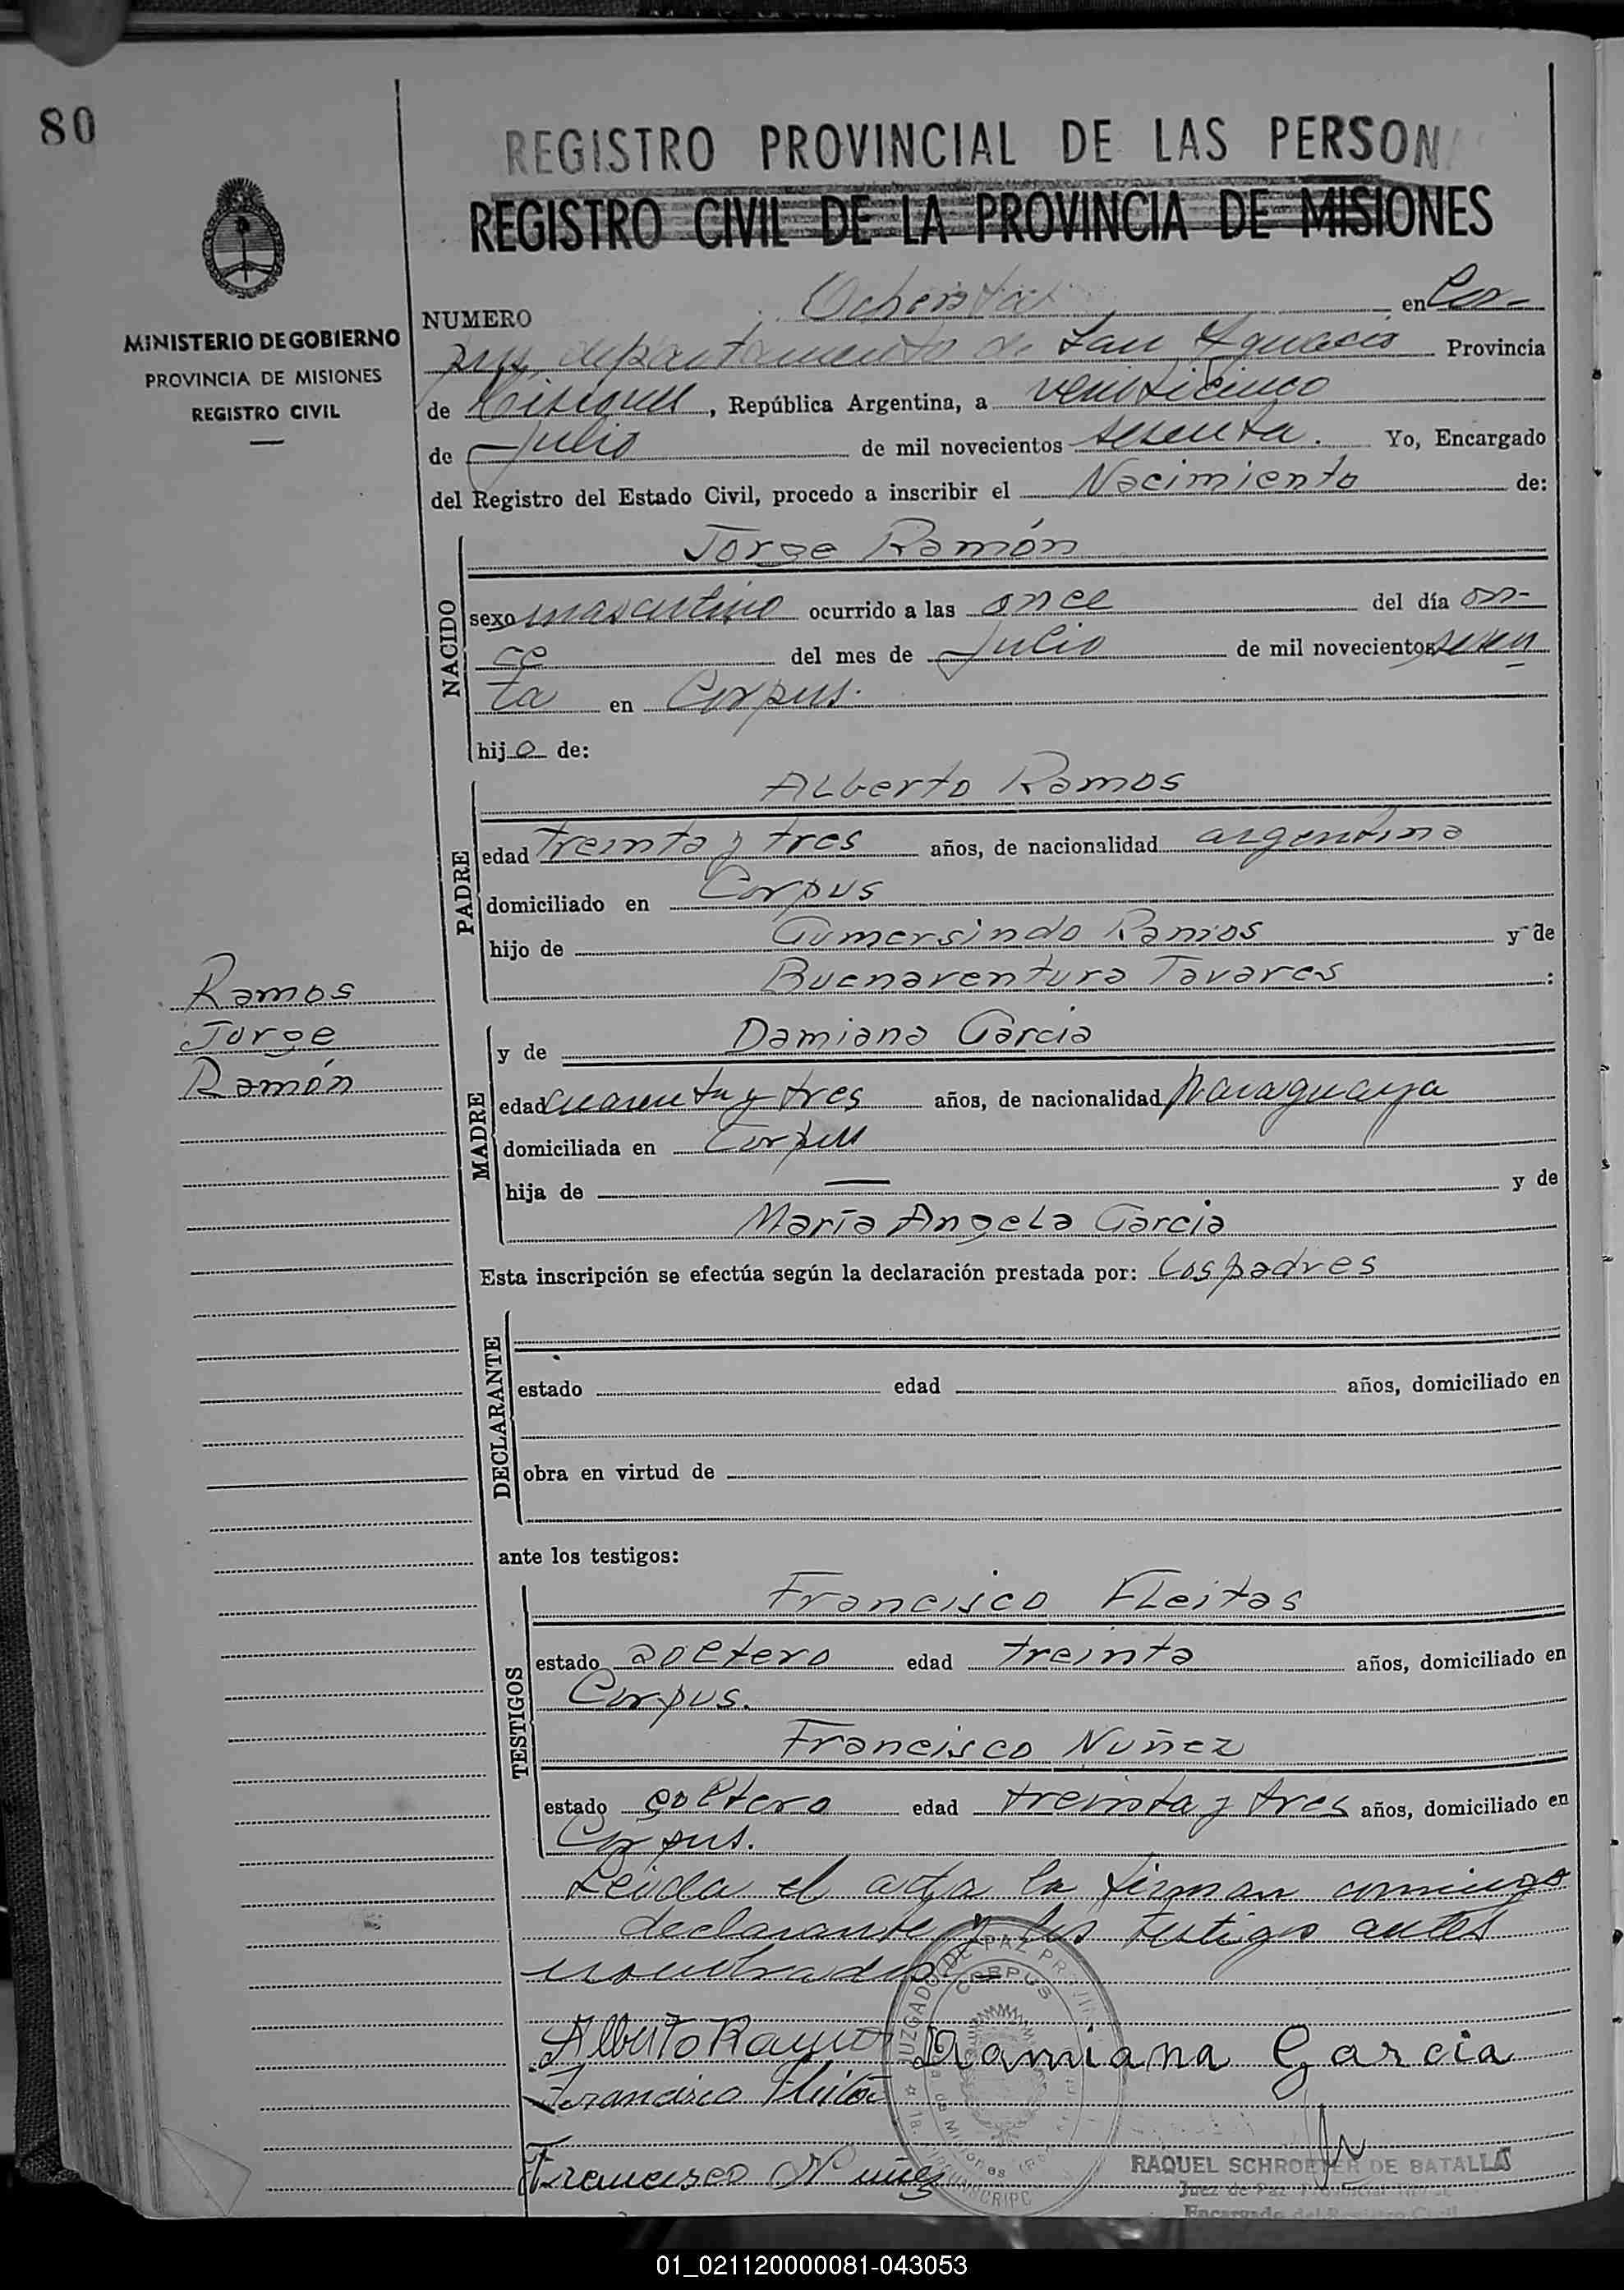 80
REGISTRO PROVINCIAL DE LAS PERSON
REGISTRO CIVIL DE LA PROVINCIA DE MISIONES
MINISTERIO DE GOBIERNO
PROVINCIA DE MISIONES
REGISTRO CIVIL
NUMERO Ochenta en Cor-
pus, departamento de San Ignacio Provincia
de Misiones, República Argentina, a veinticinco
de Julio de mil novecientos sesenta. Yo, Encargado
del Registro del Estado Civil, procedo a inscribir el Nacimiento de:
NACIDO
Jorge Ramón
sexo masculino ocurrido a las once del día on-
ce del mes de Julio de mil novecientos sesen
ta en Corpus.
hijo de:
PADRE
Alberto Ramos
edad treinta y tres años, de nacionalidad argentina
domiciliado en Corpus
hijo de Gumersindo Ramos y de
Buenaventura Tavares :
Ramos
Jorge
Ramón
MADRE
y de Damiana Garcia
edad cuarenta y tres años, de nacionalidad paraguaya
domiciliada en Corpus
hija de — y de
María Angela Garcia
Esta inscripción se efectúa según la declaración prestada por: los padres
DECLARANTE
estado edad años, domiciliado en
obra en virtud de
ante los testigos:
TESTIGOS
Francisco Fleitas
estado soltero edad treinta años, domiciliado en
Corpus.
Francisco Nuñez
estado soltero edad treinta y tres años, domiciliado en
Corpus.
Leida el acta la firman conmigo
declarante y los testigos antes
nombrados.
JUZGADO DE PAZ
CORPUS
Alberto Ramos Damiana Garcia
Francisco Fleitas
Francisco Nuñez
RAQUEL SCHROETER DE BATALLA
Juez de Paz
Encargado del Registro Civil
01_021120000081-043053